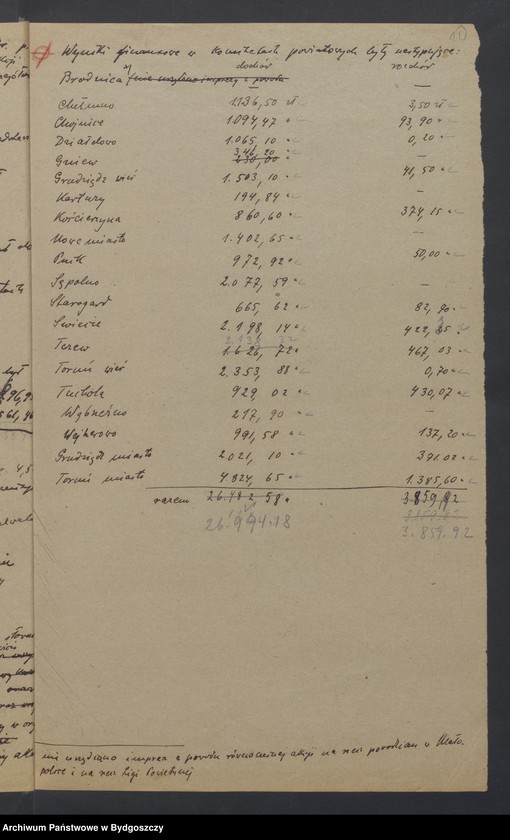 11
Wyniki finansowe w Komitetach powiatowych były następujące:
dochód rozchód
Brodnica x) (nie urządzono imprezy z powodu — —
Chełmno 1.136,50 zł 3,50 zł
Chojnice 1.094,47 " 93,90 "
Działdowo 1.065,10 " 0,20 "
Gniew 346,20 430,00 " —
Grudziądz wieś 1.503,10 " 41,50 "
Kartuzy 194,84 " —
Kościerzyna 860,60 " 374,15 "
Nowe miasto 1.402,65 " —
Puck 972,92 " 50,00 "
Sępolno 2.077,59 " —
Starogard 665,62 " 82,90 "
Świecie 2.198,14 " 422,85 "
Tczew 1.626,72 " 467,03 "
Toruń wieś 2.353,88 " 0,70 "
Tuchola 929,02 " 430,07 "
Wąbrzeźno 217,90 " —
Wejherowo 991,58 " 137,20 "
Grudziądz miasto 2.021,10 " 391.02 "
Toruń miasto 4.824,65 " 1.385,60 "
razem 26.482,58 " 3.859,92
26.994.18 3.859.92
nie urządzano imprez z powodu równoczesnej akcji na rzecz powodzian w Mało-
polsce i na rzecz Ligi Powietrznej
Archiwum Państwowe w Bydgoszczy